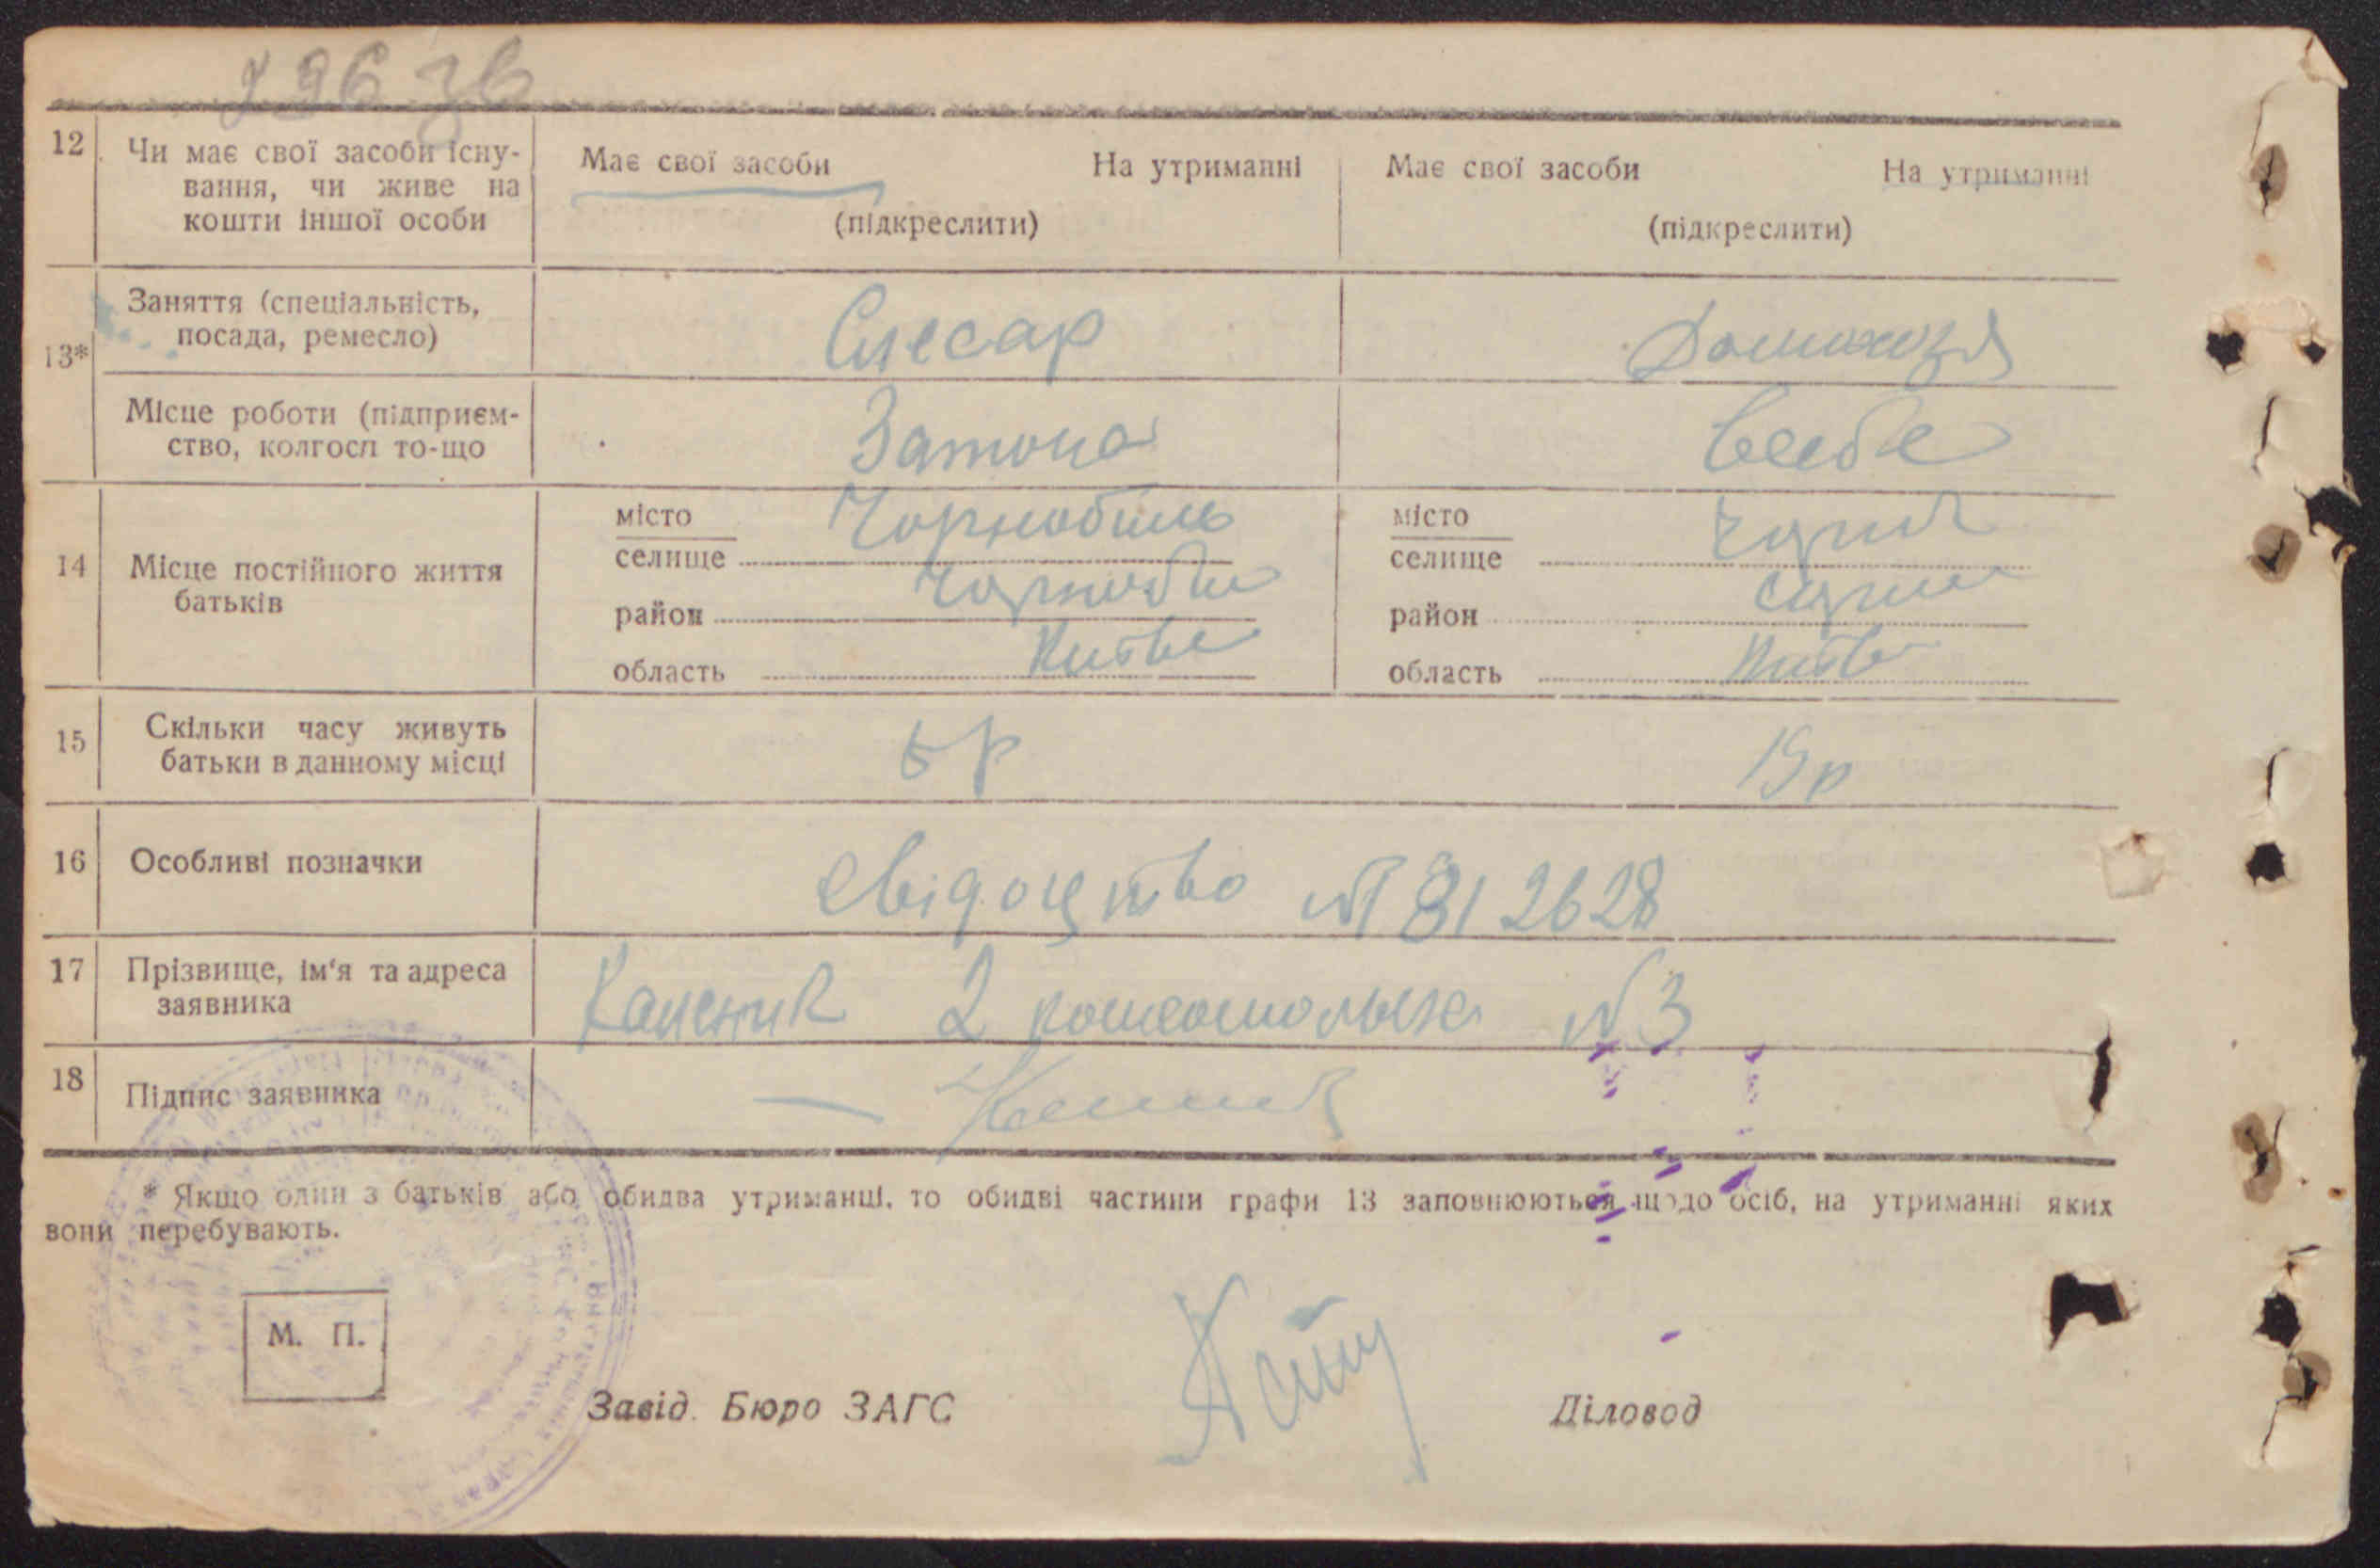 12 Чи має свої засоби існу-
вання, чи живе на
кошти іншої особи
Має свої засоби На утриманні Має свої засоби На утриманні
(підкреслити) (підкреслити)
13*
Заняття (спеціальність,
посада, ремесло)
Слесар Домохозя
Місце роботи (підприєм-
ство, колгосп то-що
Затона
14 Місце постійного життя
батьків
місто Чорнобиль місто
селище селище
район район
область область
15 Скільки часу живуть
батьки в данному місці
5 р 19 р
16 Особливі позначки
свідоцтво № 812628
17 Прізвище, ім'я та адреса
заявника
2 комсомольська №3
18 Підпис заявника
* Якщо один з батьків або обидва утриманці, то обидві частини графи 13 заповнюються щодо осіб, на утриманні яких
вони перебувають.
М. П.
Завід. Бюро ЗАГС Діловод